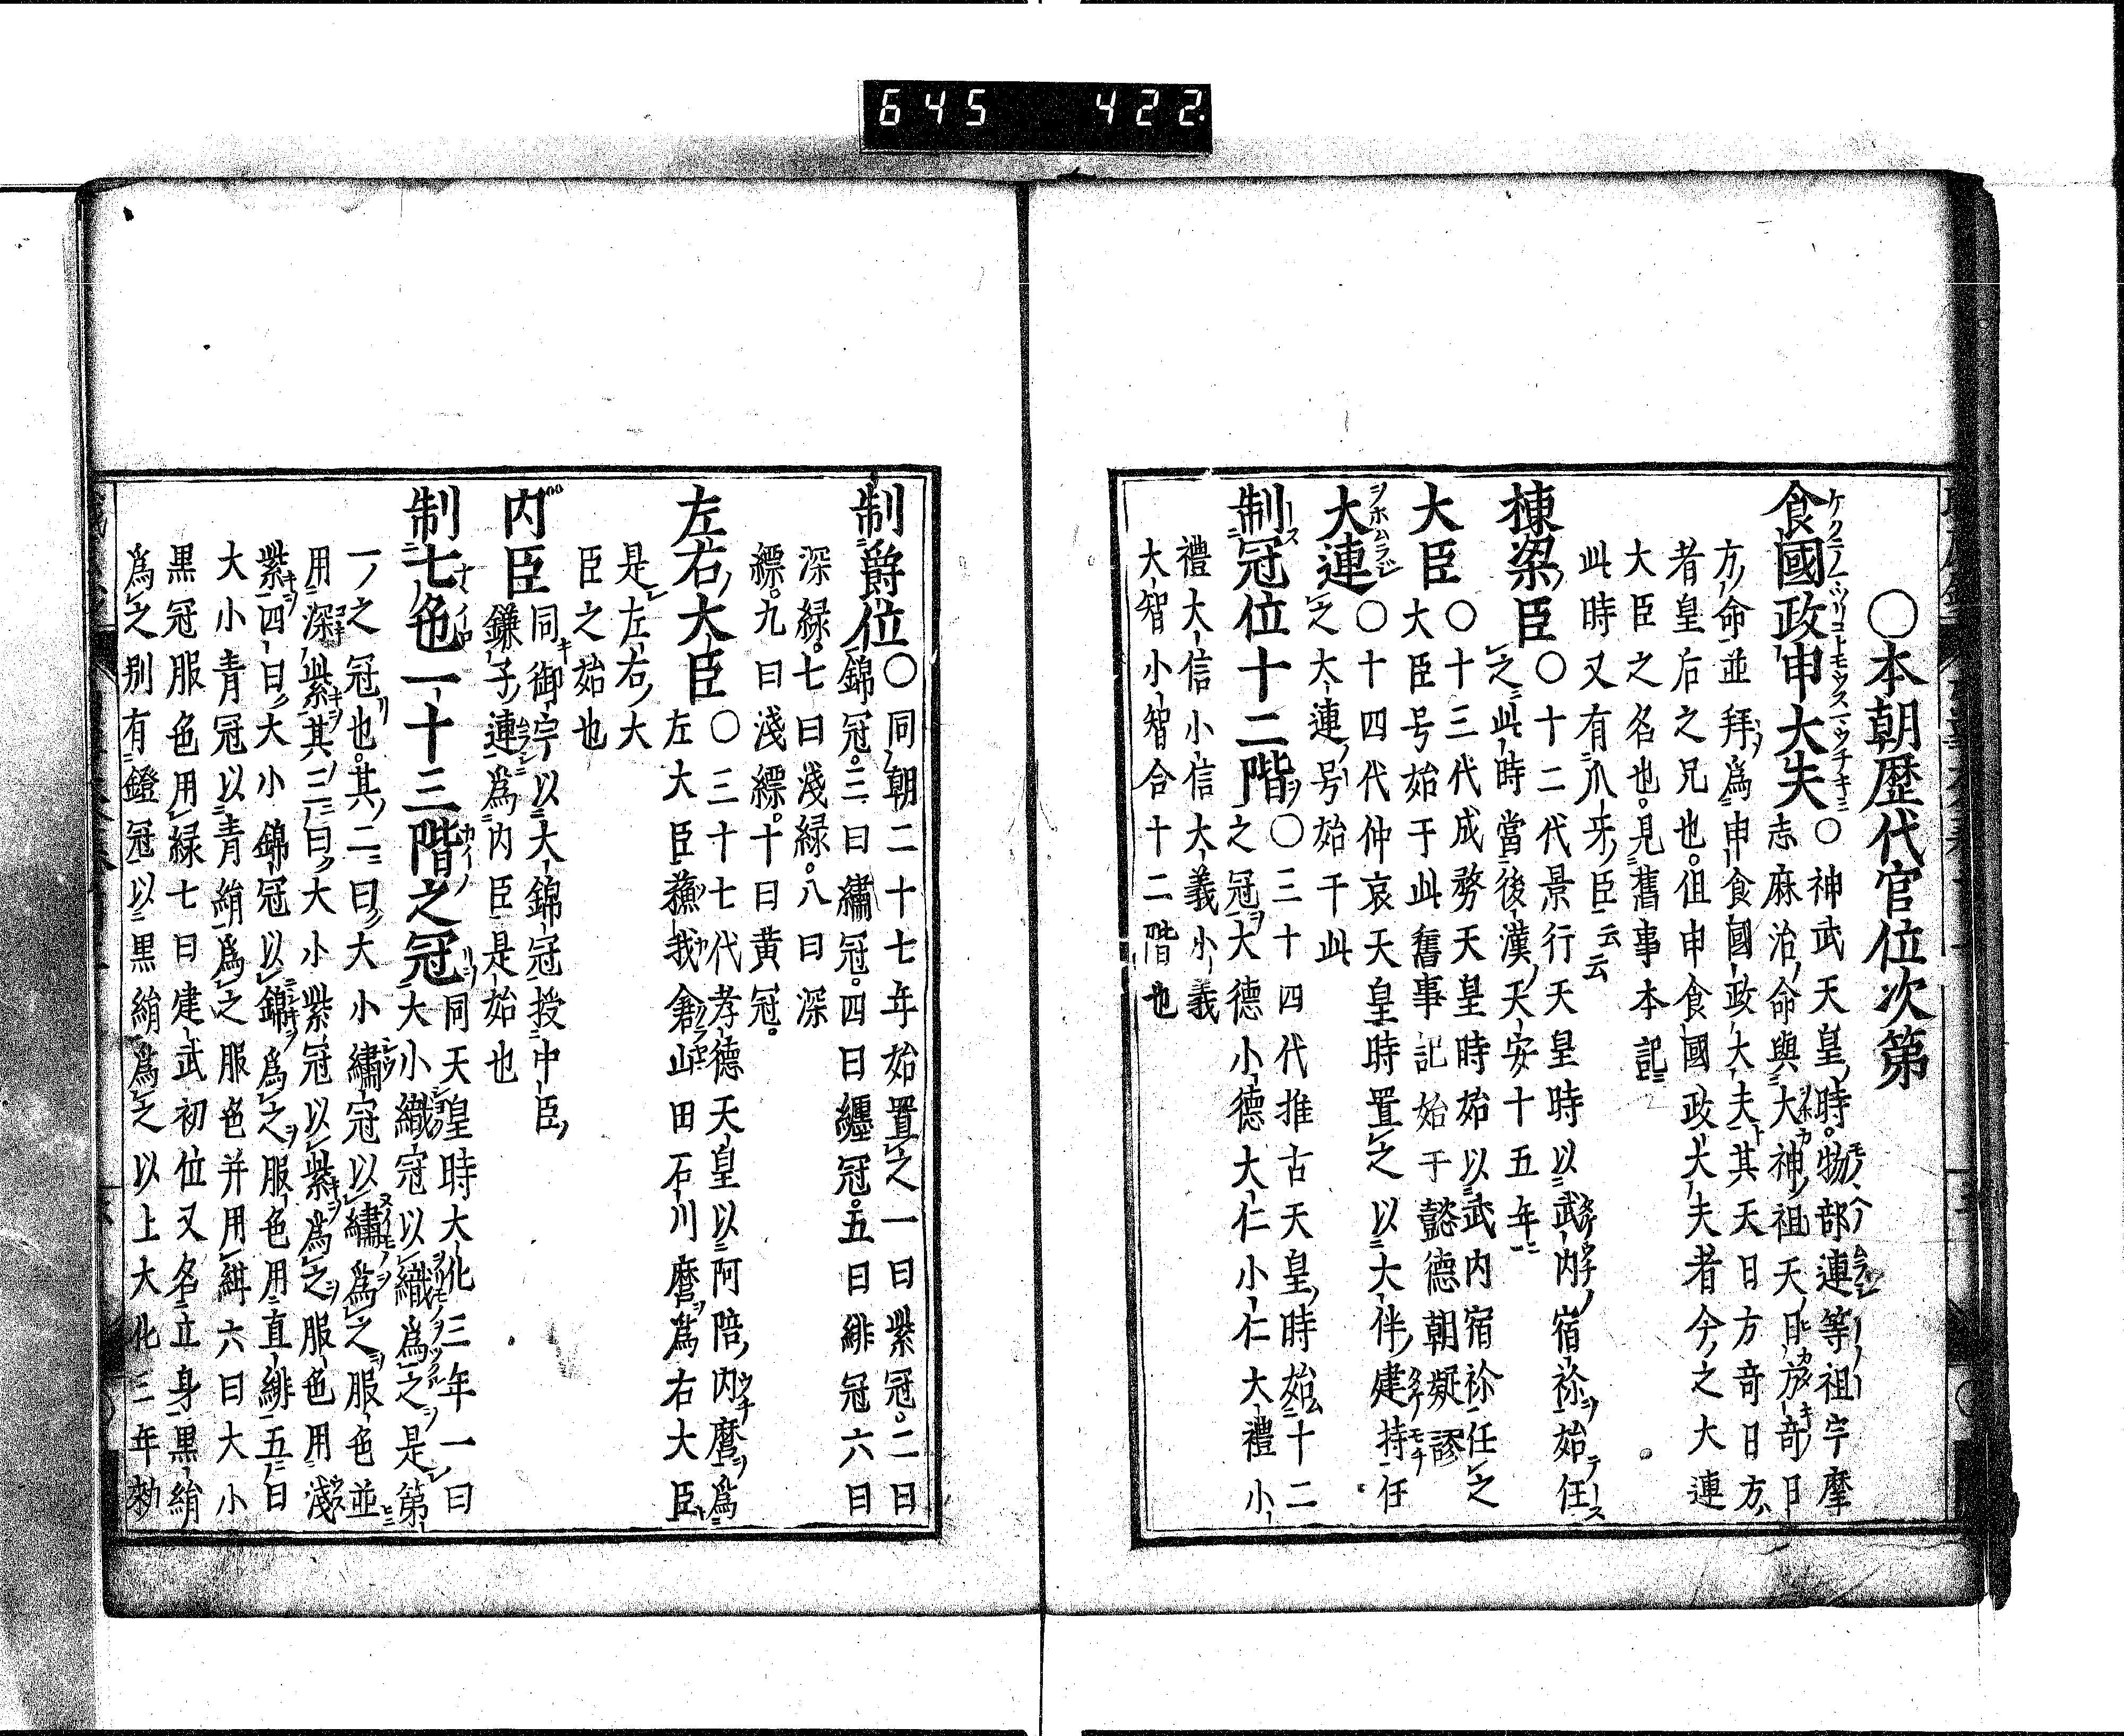 645 422
〇本朝歴代官位次第
食國政申大夫〇神武天皇時。物部連等祖宇摩
志麻治命與大神祖天日方竒日
方命並拜爲申食國政大夫其天日方竒日方
者皇后之兄也。徂申食國政大夫者今之大連
大臣之名也。見舊事本記
此時又有爪牙臣云云
棟梁臣〇十二代景行天皇時以武内宿祢始任
之此時當後漢天安十五年
大臣〇十三代成務天皇時始以武内宿祢任之
大臣号始于此舊事記始于懿德朝疑謬
大連〇十四代仲哀天皇時置之以大伴建持任
之大連号始于此
制冠位十二階〇三十四代推古天皇時始十二
之冠大德小德大仁小仁大禮小
禮大信小信大義小義
大智小智合十二階也
制爵位〇同朝二十七年始置之一曰紫冠。二曰
錦冠。三曰繡冠。四曰纒冠。五曰緋冠六曰
深緑。七曰淺緑。八曰深
縹。九曰淺縹。十曰黄冠。
左右大臣〇三十七代孝德天皇以阿陪内麿爲
左大臣蘓我倉山田石川麿爲右大臣
是左右大
臣之始也
内臣同御宇以大錦冠授中臣
鎌子連爲内臣是始也
制七色一十三階之冠同天皇時大化三年一曰
大小織冠以織爲之是第
一之冠也。其二曰大小繡冠以繡爲之服色並
用深紫其三曰大小紫冠以紫爲之服色用淺
紫四曰大小錦冠以錦爲之服色用直緋五曰
大小青冠以青絹爲之服色并用紺六曰大小
黒冠服色用緑七曰建武初位又名立身黒絹
爲之别有鐙冠以黒絹爲之以上大化三年勑